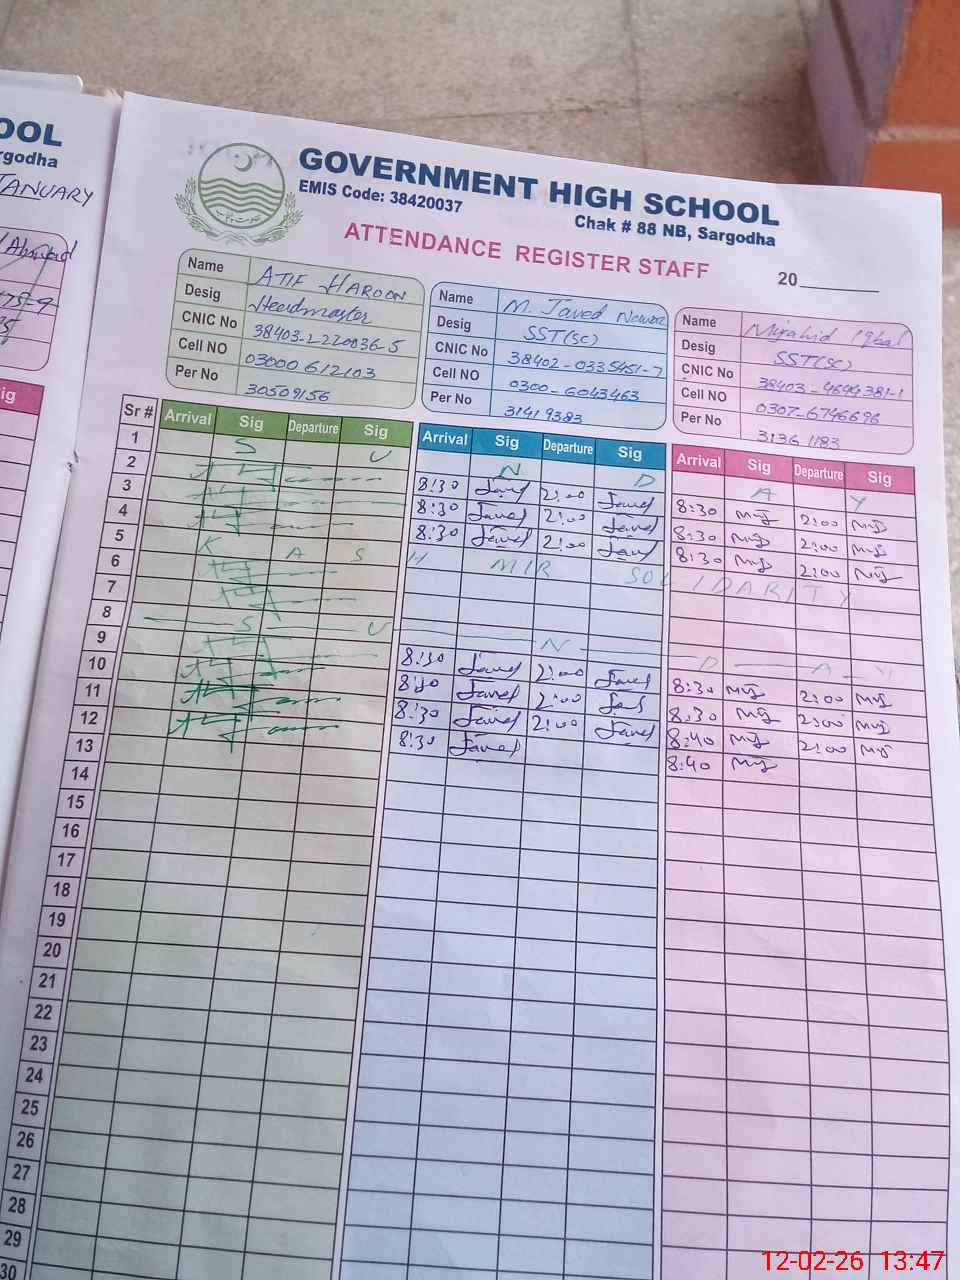 OOL
rgodha
JANUARY
GOVERNMENT HIGH SCHOOL
EMIS Code: 38420037
Chak # 88 NB, Sargodha
ATTENDANCE REGISTER STAFF
20
Name ATIF HAROON
Desig Headmaster
CNIC No 38403-2220036-5
Cell NO 03000612103
Per No 30509156
Name M. Javed Nawaz
Desig SST(SC)
CNIC No 38402-0335451-7
Cell NO 0300-6043463
Per No 31419383
Name Mujahid Iqbal
Desig SST(SC)
CNIC No 38403-4644381-1
Cell NO 0307-6746696
Per No 31361183
ig
Sr # Arrival Sig Departure Sig Arrival Sig Departure Sig Arrival Sig Departure Sig
1 S U N D A Y
2 8:30 Javed 2:00 Javed 8:30 2:00
3 8:30 Javed 2:00 Javed 8:30 2:00
4 8:30 Javed 2:00 Javed 8:30 2:00
5 K A S H MIR SOLIDARITY
6
7
8 S U N D A Y
9 8:30 Javed 2:00 Javed 8:30 2:00
10 8:30 Javed 2:00 8:30 2:00
11 8:30 Javed 2:00 Javed 8:40 2:00
12 8:30 Javed 8:40
13
14
15
16
17
18
19
20
21
22
23
24
25
26
27
28
29
30
12-02-26 13:47